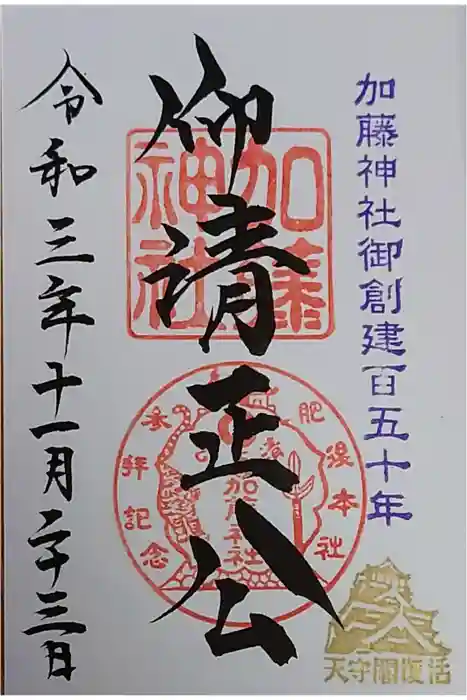 加藤神社御創建百五十年
仰清正公
加藤神社
肥後本社
参拝記念
加藤神社
天守閣復活
令和三年十一月二十三日